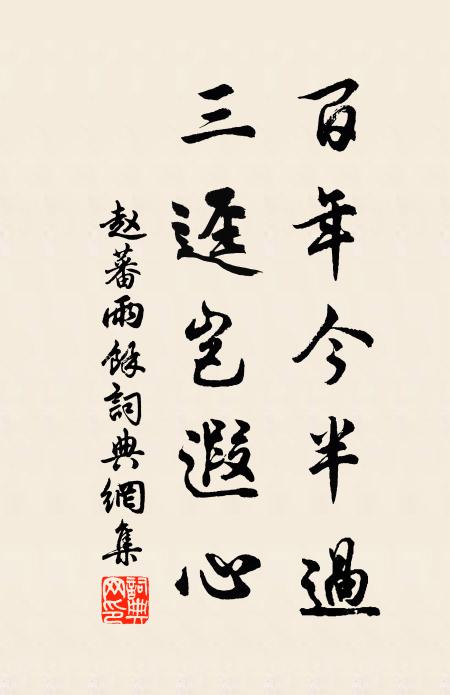 百年今半過
三逕岂遐心
赵蕃雨餘詞典網集
詞典网印